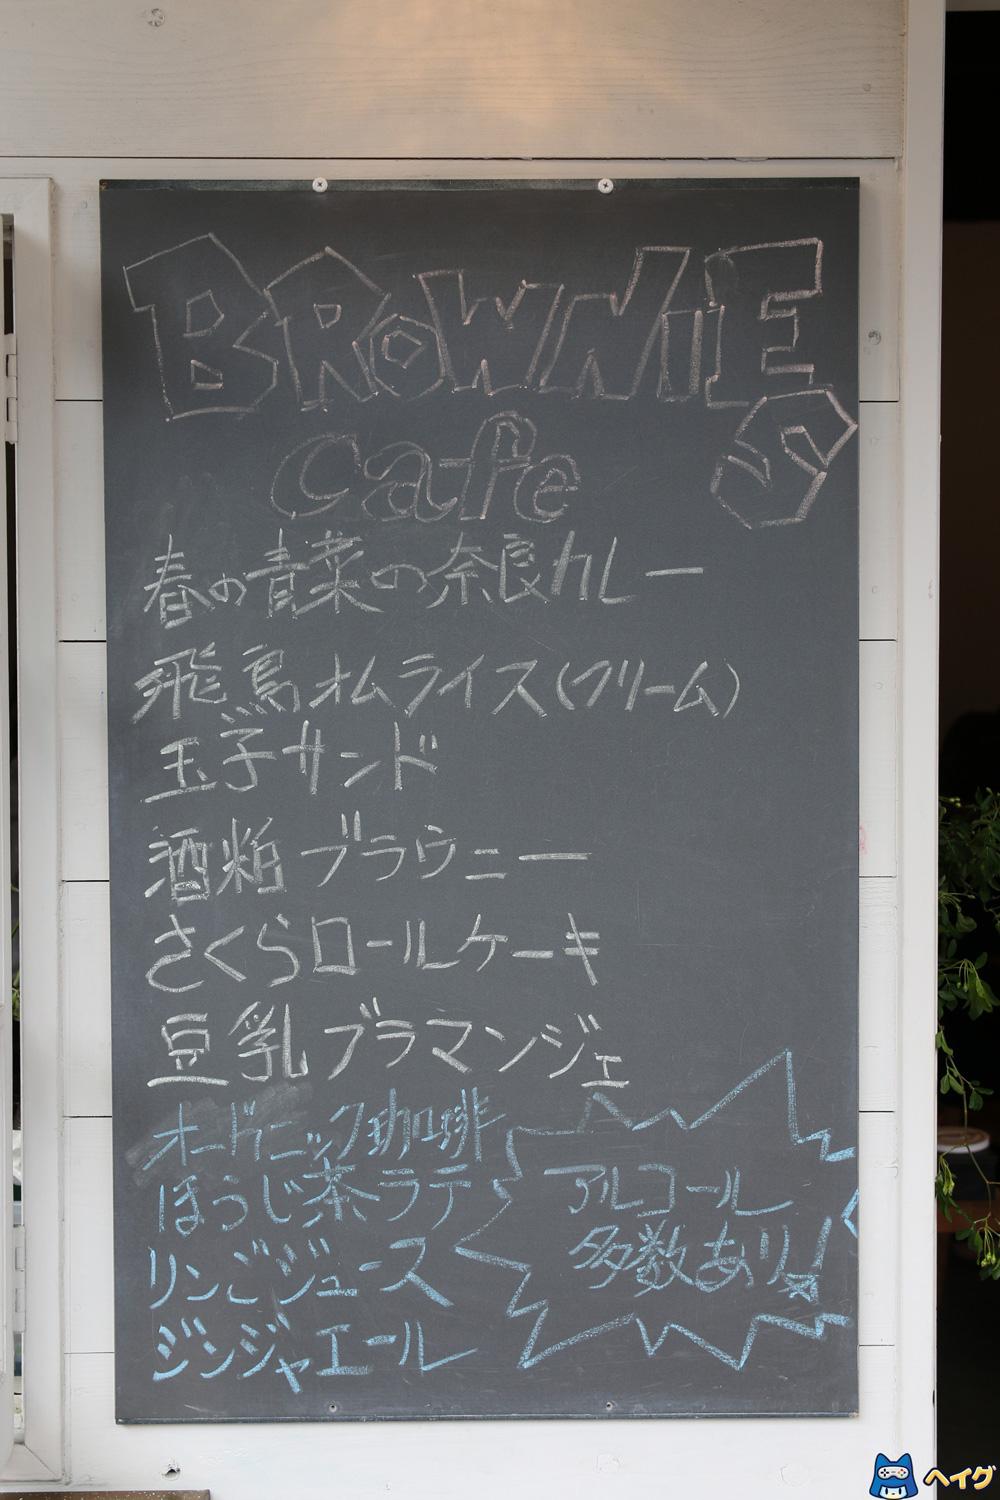 BROWNIES
cafe
春の青菜の奈良カレー
飛鳥オムライス(クリーム)
玉子サンド
酒粕ブラウニー
さくらロールケーキ
豆乳ブラマンジェ
オーガニック珈琲
ほうじ茶ラテ
りんごジュース
ジンジャエール
アルコール
多数あり!
ヘイグ